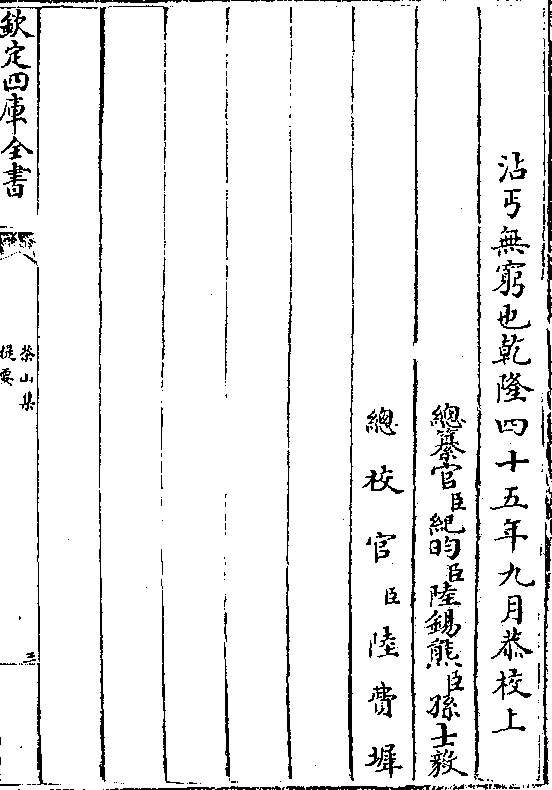 沾丐無窮也乾隆四十五年九月恭校上
總纂官臣紀昀臣陸錫熊臣孫士毅
總校官臣陸費墀
欽定四庫全書
茶山集
提要
三